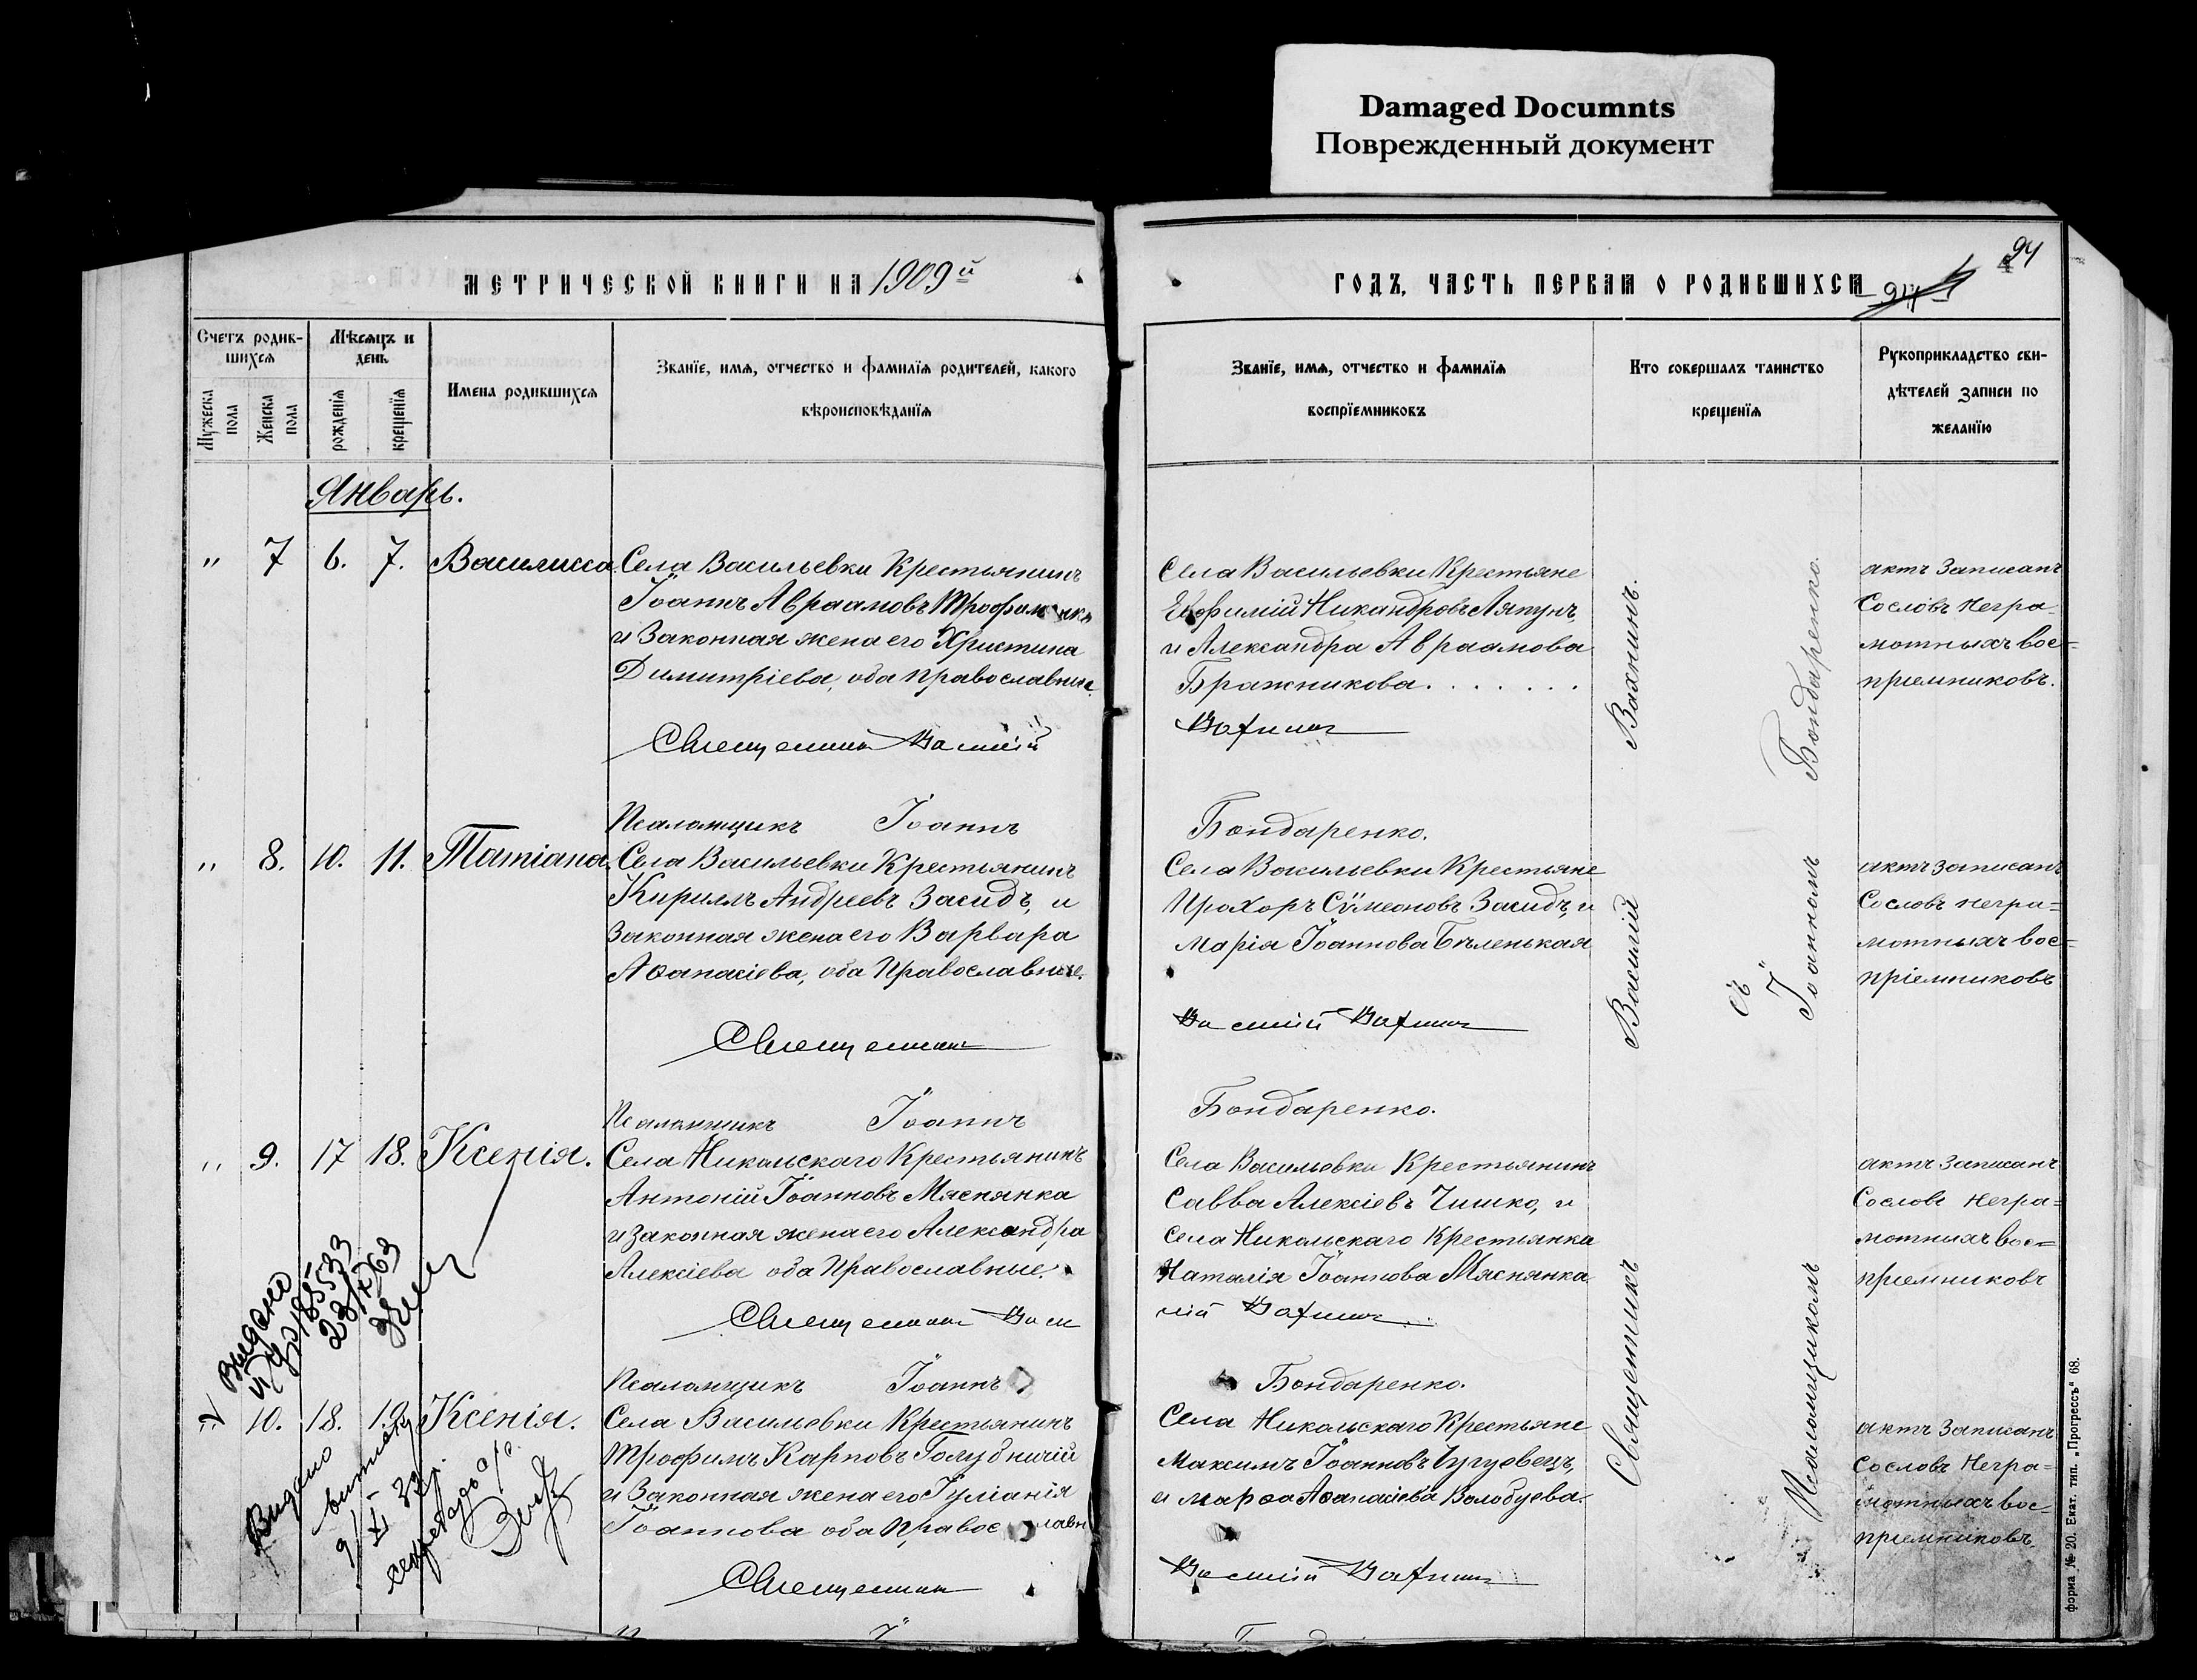 Damaged Documnts
Поврежденный документ
94
МЕТРИЧЕСКОЙ КНИГИ НА 1909й
ГОДЪ, ЧАСТЬ ПЕРВАЯ О РОДИВШИХСЯ
94
Счетъ родив-
шихся
Мужеска
пола
Женска
пола
Мѣсяцъ и
день
рожденїя
крещенїя
Имена родившихся
Званїе, имя, отчество и фамилїя родителей, какого
вѣроисповѣданїя
Званїе, имя, отчество и фамилїя
воспрїемниковъ
Кто совершалъ таинство
крещенїя
Рукоприкладство сви-
дѣтелей записи по
желанїю
Январь.
" 7 6. 7. Василисса
Села Васильевки Крестьянинъ
Іоаннъ Авраамовъ
и Законная жена его Христина
Димитріева, оба православные
Священникъ Василій
Псаломщикъ Іоаннъ
Села Васильевки Крестьяне
Евфимій Никандровъ Ляпунъ,
и Александра Авраамова
Бражникова.......
Вахнинъ
Бондаренко.
актъ Записанъ
Со словъ Негра-
мотныхъ вос=
пріемниковъ.
" 8. 10. 11. Татіана.
Села Васильевки Крестьянинъ
Кириллъ Андреевъ Засидъ, и
Законная жена его Варвара
Аѳанасіева, оба Православные.
Священникъ
Псаломщикъ Іоаннъ
Села Васильевки Крестьяне
Прохоръ Сѵмеоновъ Засидъ, и
Марія Іоаннова Бѣленькая
Василій Вахнинъ
Бондаренко.
актъ записанъ
Со словъ негра=
мотныхъ вос=
пріемниковъ
" 9. 17 18. Ксенія.
Села Никольскаго Крестьянинъ
Антоній Іоанновъ Мяснянка
и законная жена его Александра
Алексіева оба Православные.
Священникъ Васи
Псаломщикъ Іоаннъ
Села Васильевки Крестьянинъ
Савва Алексіевъ Чишко, и
Села Никольскаго Крестьянка
Наталія Іоаннова Мяснянка
лій Вахнинъ
Бондаренко.
актъ Записанъ
Со словъ Негра=
мотныхъ вос=
пріемниковъ
Видано
23/X 63
" 10. 18. 19. Ксенія.
Села Васильевки Крестьянинъ
Трофимъ Карповъ Голубничій
и Законная жена его Іуліанія
Іоаннова оба Православн
Священникъ
Села Никольскаго Крестьяне
Максимъ Іоанновъ Чугуевецъ,
и Марѳа Аѳанасіева Волобуева.
Василій Вахнинъ
актъ Записанъ
Со словъ Негра=
мотныхъ вос=
пріемниковъ
Видано
витяг
секретарь
Священникъ Василій Вахнинъ.
съ
Псаломщикомъ Іоанномъ Бондаренко.
форма № 20. Екат. тип. „Прогрессъ" 68.